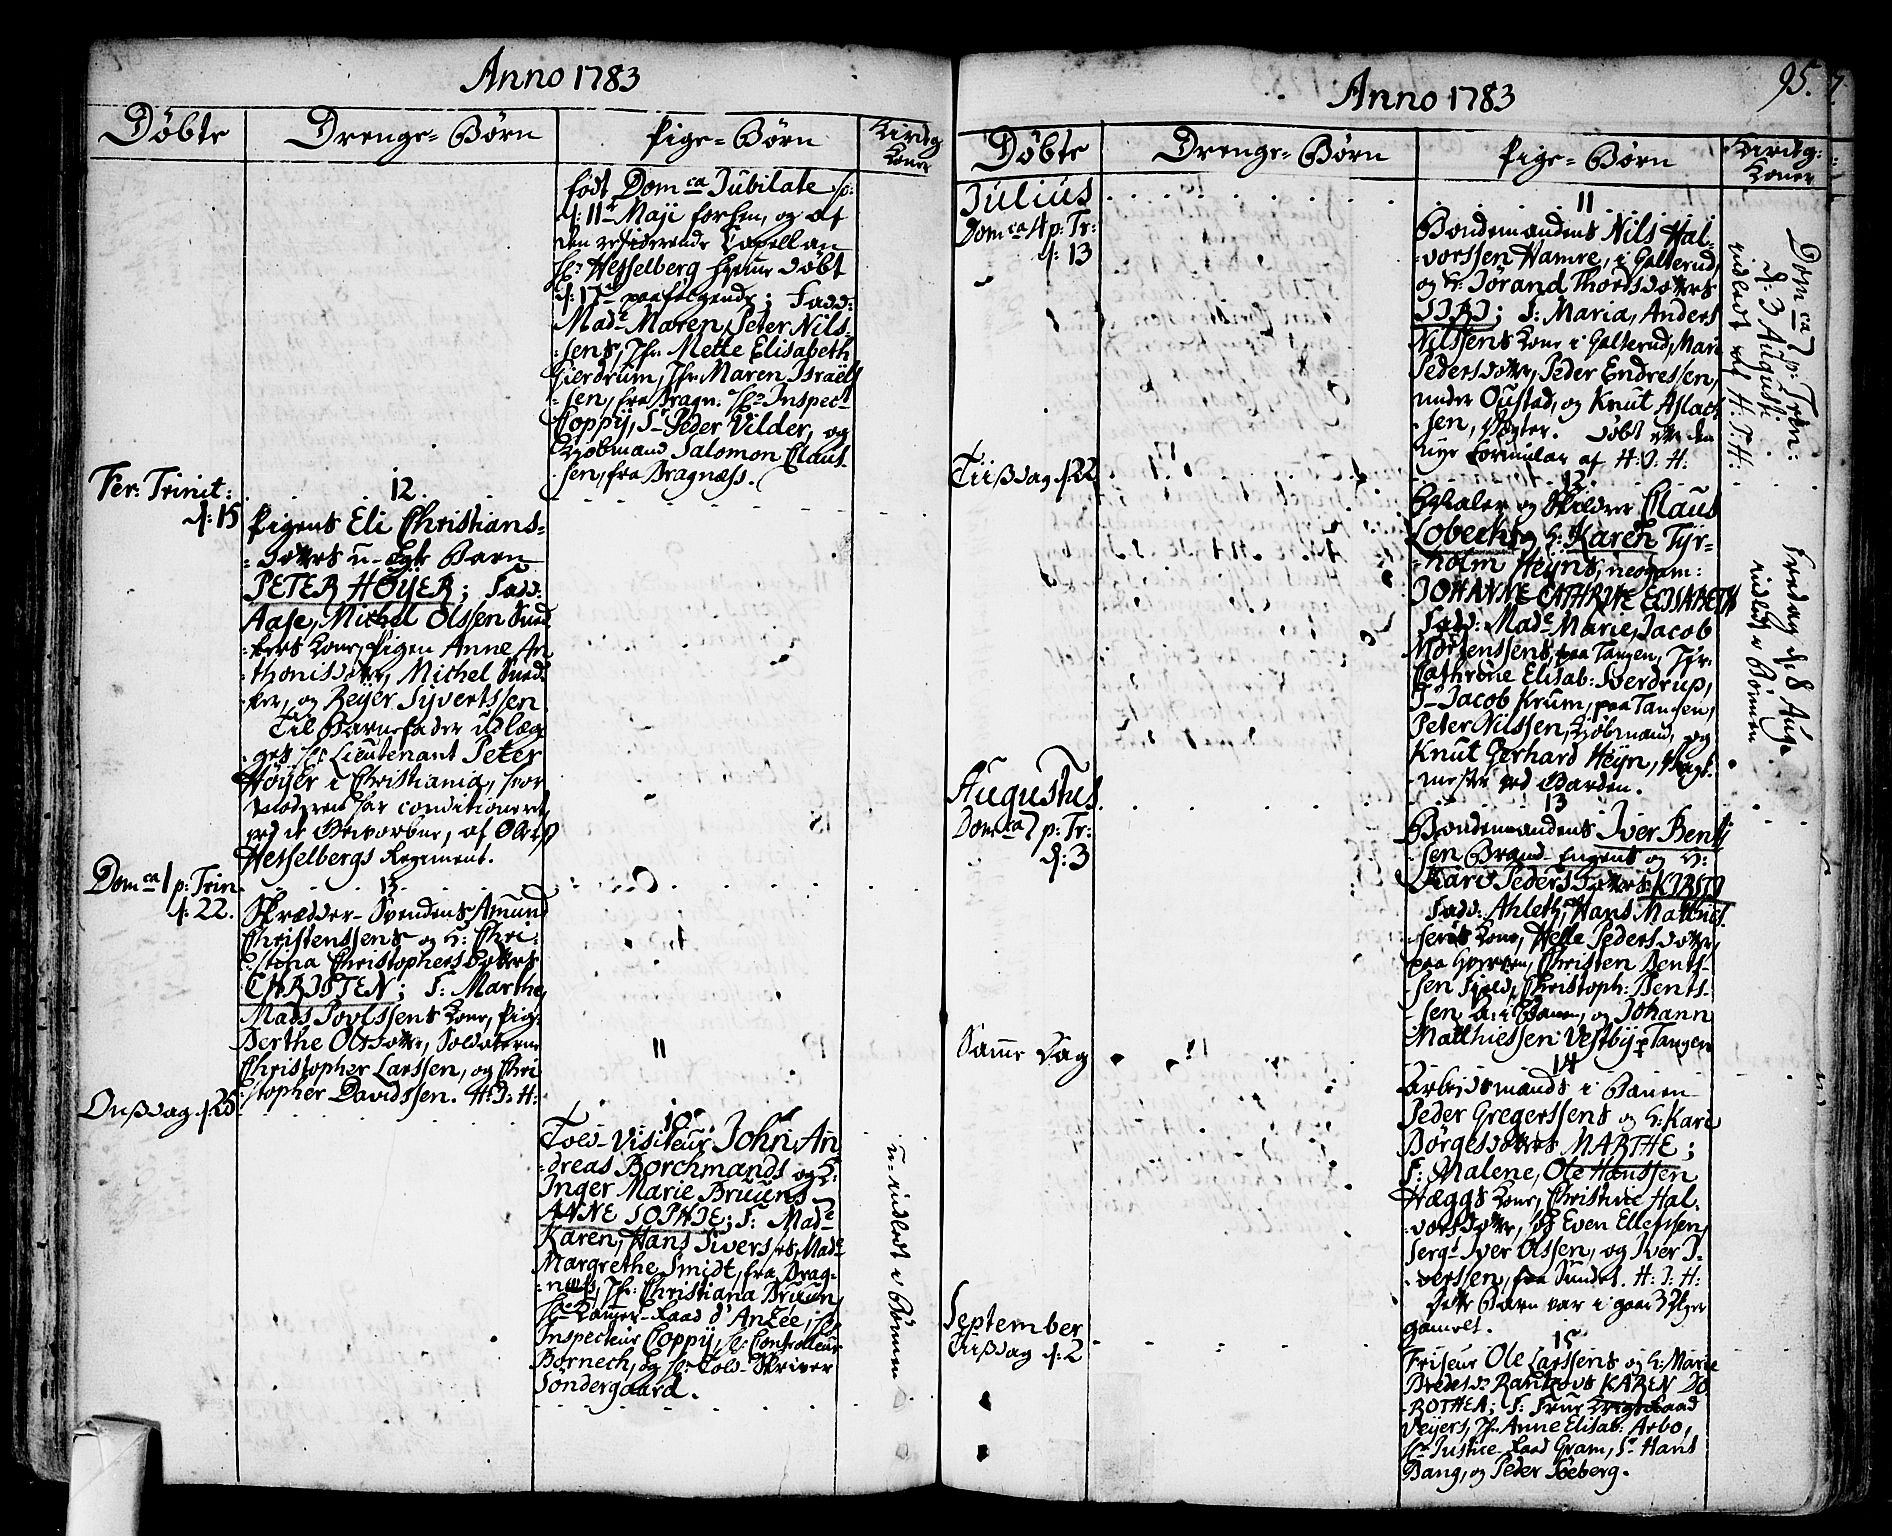 Anno 1783
Döbte
Drenge=Börn
Pige=Börn
Kirkg
Koner
født Dom ca Jubilate
d: 11te Maji forhen, og af
den residerende Capellan
Hr Hesselberg hjemme døbt
d: 17de paafølgende; Fadd:
Made Maren, Peter Nils-
-sens, Jfr. Mette Elisabeth
Gierdrum, Jfr Maren Israëls
-sen, fra Bragn: Hr Inspect
Coppij, Sr Peder Vilder, og
Kjøbmand Salomon Claus-
sen, fra Bragnæss.
Fer: Trinit:
d: 15
12.
Pigens Eli Christians-
-dotters u-Egte Barn
PETER HØYER; Fadd:
Aase, Michel Olssen Sund
-kers Kone, Pigen Anne An
-thonisdotter, Michel Sund
ker, og Reyer Syvertssen
Til Barnefader udlæg-
ges Hr Lieutenant Peter
Höyer i Christiania, hvor
Moderen har conditioneret
ved it Geworbne, af Obrist
Hesselbergs Regiment.
Dom ca 1 p: Trin
d: 22.
13
Skrædder-Svendens Amund
Christenssens og H: Chri-
stina Christophersdotters
CHRISTEN; F: Marthe
Mads Povlssens Kone, Pig:
Berthe Olsdotter, Soldaterne
Christopher Larssen, og Chri
stopher Davidssen. H: I: H:
Onßdag d: 25
10.
Told-Visiteur John An
-dreas Borchmands og H:
Inger Marie Bruuns
ANNE SOPHIE; F: Made
Karen, Hans Sivers, Made
Margrethe Smidt, fra Brag-
-næß, Jfr: Christiana Bruun,
Hr Kammer-Raad d'Anzée, Hr
Inspecteur Coppij, Hr Controlleur
Bornech, og Hr Told-Skriver
Söndergaard.
u-indledt i Bönnen
Anno 1783
95.
Döbte
Drenge=Börn
Pige=Börn
Kirkg:
Koner
Julius
Dom ca 4 p: Tr:
d: 13
11
Bondemandens Nils Hal-
-vorssen Hamre, i Galterud,
og H: Jörand Thordsdotters
SIRI; F: Maria, Anders
Nilssens Kone i Galterud, Mari
Pedersdotter, Peder Endressen,
under Oustad, og Knut Aslack
sen, Vægter. Døbt efter den
nye Formular af H: I: H:
Dom ca 7 p: Trin:
d: 3 Augusti
indledt af H: I: H:
Tiißdag d: 22
12
Mahler og Skildrer Claus
Lobechs og H: Karen Tyr-
-holm Heyns, neogam:
JOHANNE CATHRINE ELISABETH
Fadd: Made Marie, Jacob
Mortenssens, paa Tangen, Jfr.
Cathrine Elisab: Sverdrup,
Sr Jacob Krum, paa Tangen,
Peter Nilssen, Kjöbmand, og
Knut Gerhard Heyn,
mester ved Varden.
Fredag d: 8 Aug:
indledt i Bönnen
Augustus
Dom ca 7 p: Tr:
d: 3
13
Bondemandens Iver Bent
-sen Brand-Engens og H:
Kari Pedersdotters KIRSTI
Fadd: Ahleth, Hans Matthies
-sens Kone, Helle Pedersdotter,
paa, Christen Bents-
sen Fjeld, Christoph: Bents-
sen, og Johann
Matthiessen Vestby p Tangen
Samme Dag
14
Arbejdsmands i Baen
Peder Gregerssens og H: Kari
Börgesdotters MARTHE;
F: Malene, Ole Hanssen
Hæggs Kone, Christine Hal-
vorsdotter, Even Ellefssen,
Sergt Iver Olssen, og Iver I-
-verssen, fra Sundet. H: I: H:
Dette Barn var i gaar 3 Uger
gamelt.
September
Tiißdag d: 2
15
Friseur Ole Larssens og H: Marie
Bredesd: Rantzovs KAREN DO
-ROTHEA; F: Frue Krigsraad
Veyers, Jfr Anne Elisab: Arbo,
Hr Justice-Raad Gram, Sr Hans
Bang, og Peter Söeberg.